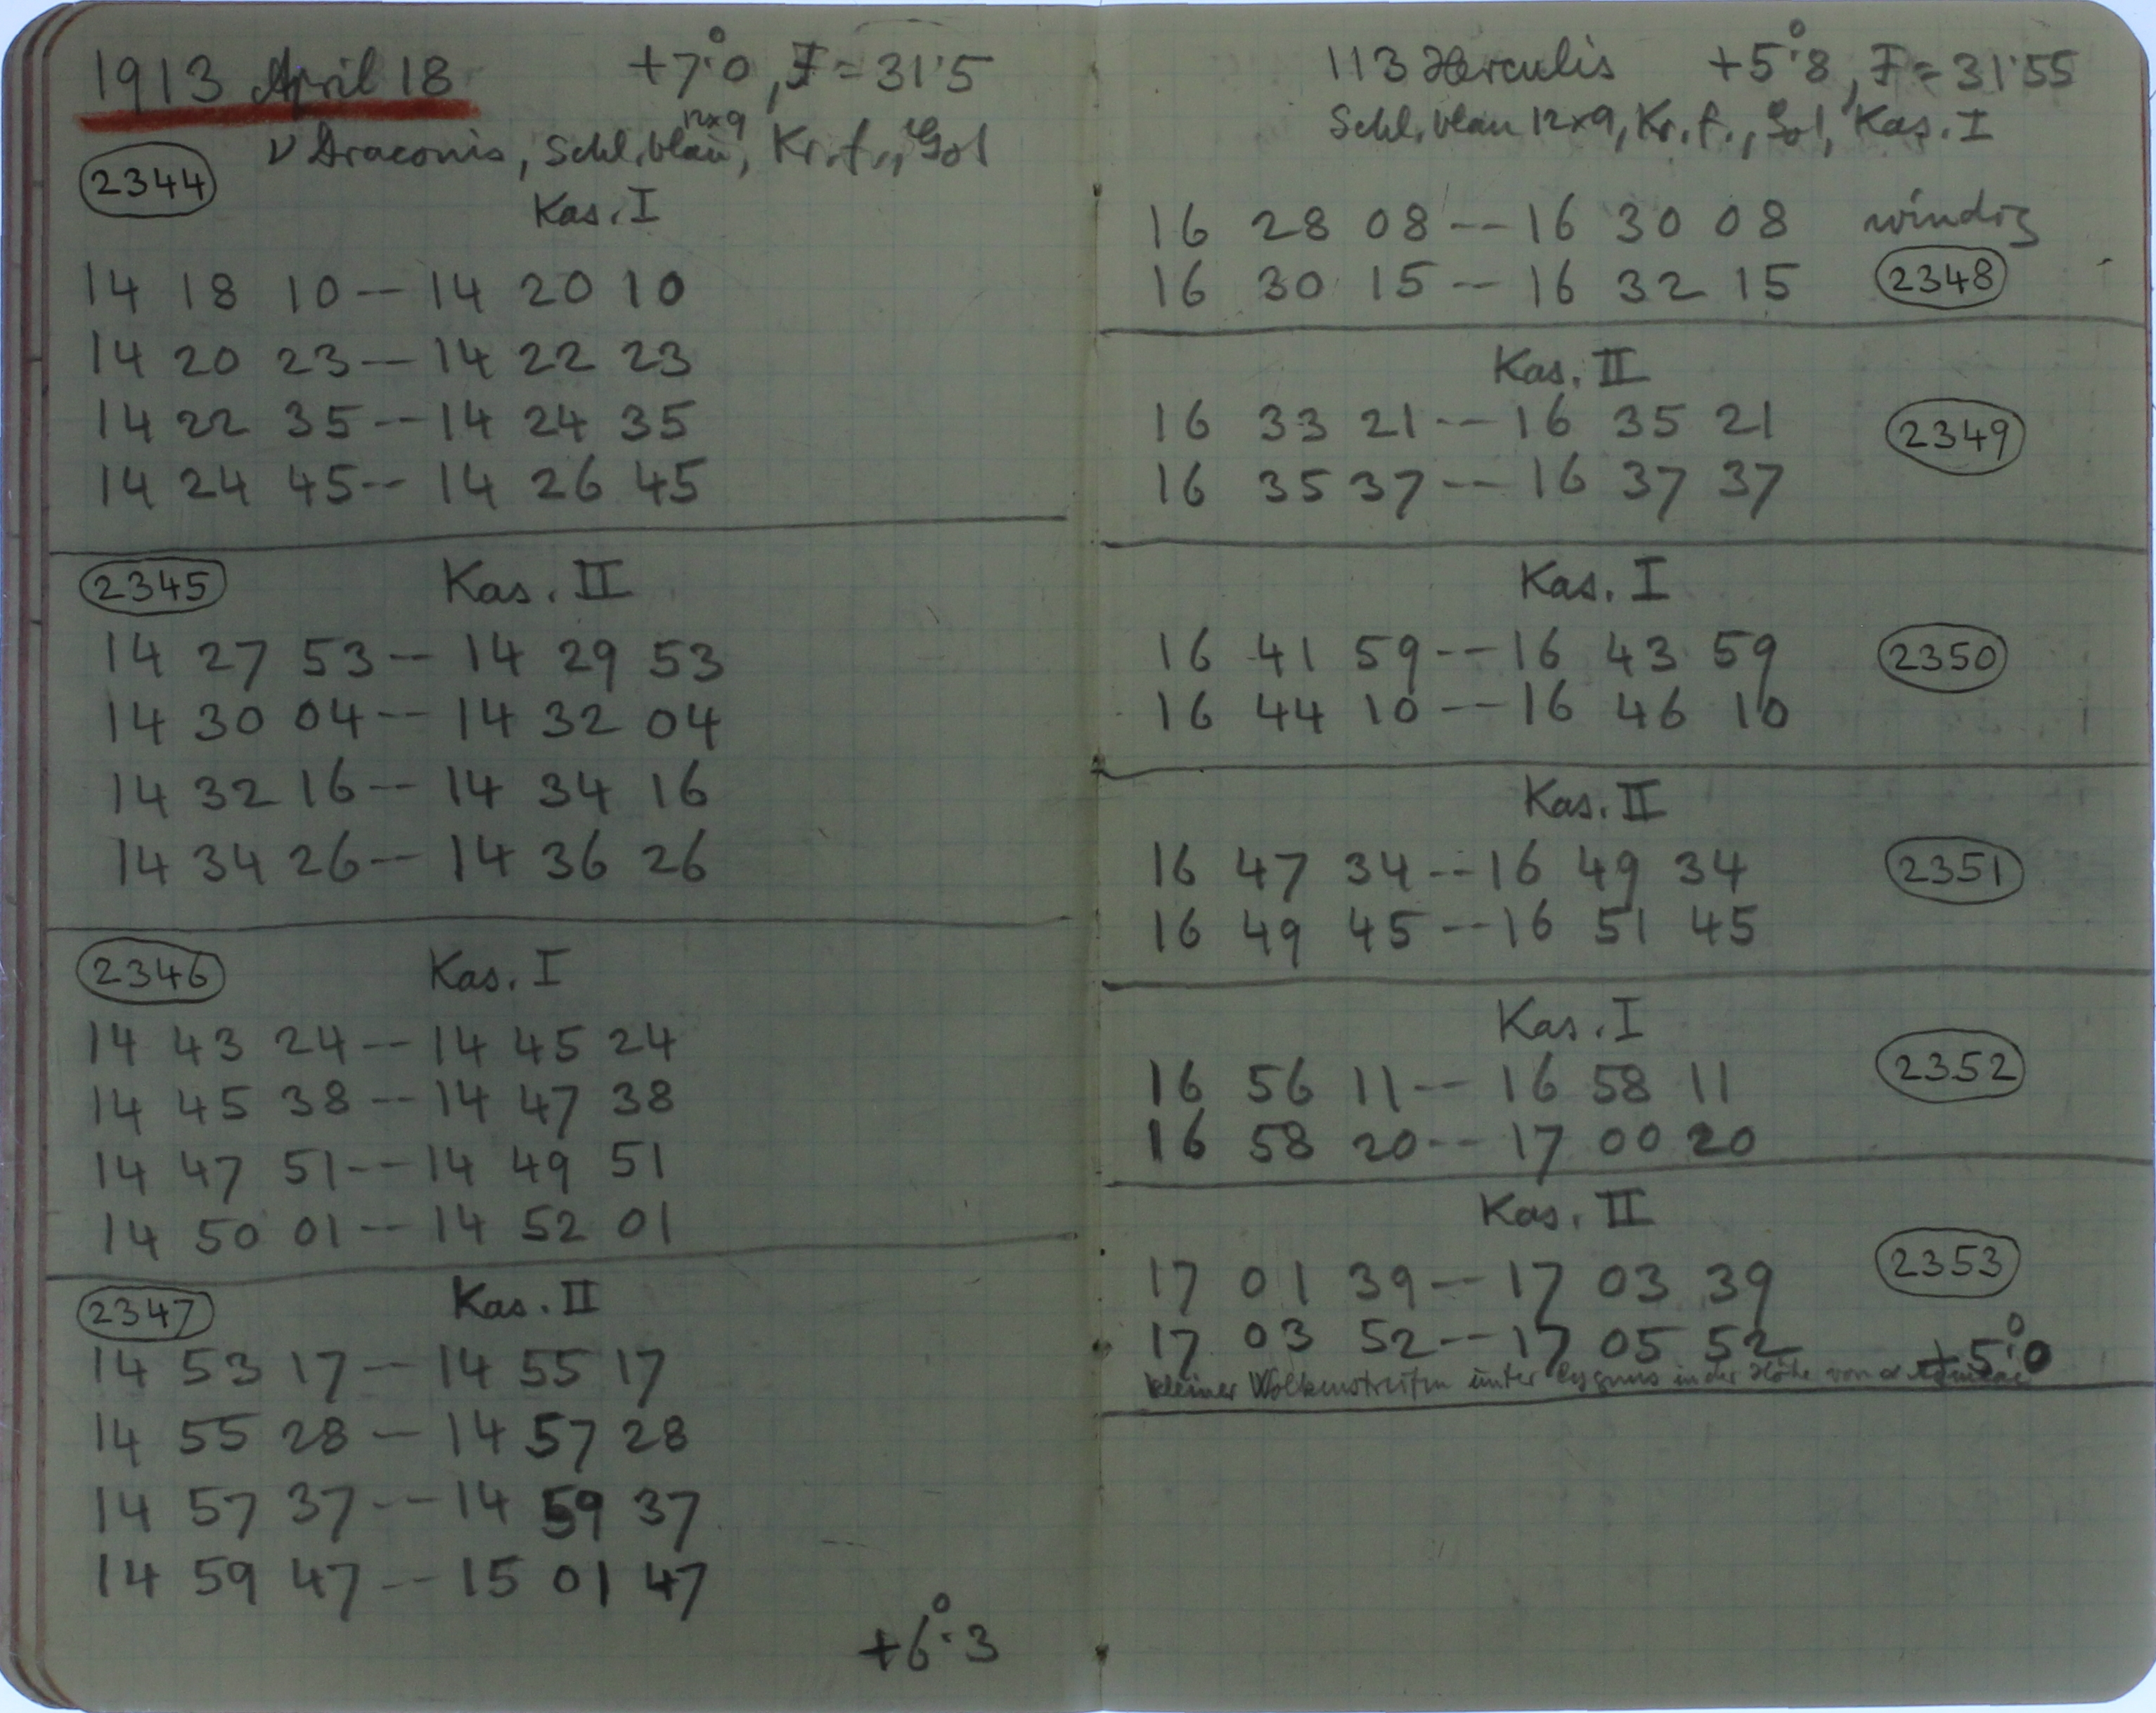 1913 April 18 +7°.0, F=31.5
ν Draconis, Schl. blau 12x9, Kr. f., Sol
2344
Kas. I
14 18 10 -- 14 20 10
14 20 23 -- 14 22 23
14 22 35 -- 14 24 35
14 24 45 -- 14 26 45
2345 Kas. II
14 27 53 -- 14 29 53
14 30 04 -- 14 32 04
14 32 16 -- 14 34 16
14 34 26 -- 14 36 26
2346 Kas. I
14 43 24 -- 14 45 24
14 45 38 -- 14 47 38
14 47 51 -- 14 49 51
14 50 01 -- 14 52 01
2347 Kas. II
14 53 17 -- 14 55 17
14 55 28 -- 14 57 28
14 57 37 -- 14 59 37
14 59 47 -- 15 01 47
+6°.3
113 Herculis +5°.8, F=31.55
Schl. blau 12x9, Kr. f., Sol, Kas. I
16 28 08 -- 16 30 08 windig
16 30 15 -- 16 32 15 2348
Kas. II
16 33 21 -- 16 35 21 2349
16 35 37 -- 16 37 37
Kas. I
16 41 59 -- 16 43 59 2350
16 44 10 -- 16 46 10
Kas. II
16 47 34 -- 16 49 34 2351
16 49 45 -- 16 51 45
Kas. I
16 56 11 -- 16 58 11 2352
16 58 20 -- 17 00 20
Kas. II
17 01 39 -- 17 03 39 2353
17 03 52 -- 17 05 52 +5°.0
kleiner Wolkenstreifen unter Cygnus in der Höhe von α